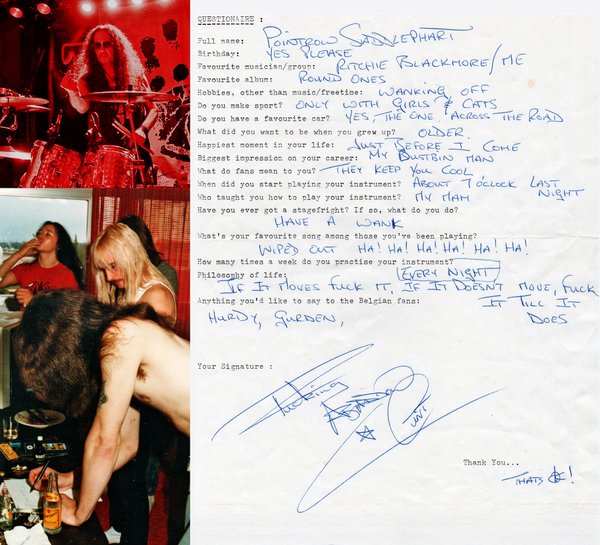 QUESTIONAIRE :
Full name: POINTROW SADDLEPHART
Birthday: YES PLEASE
Favourite musician/group: RITCHIE BLACKMORE/ME
Favourite album: ROUND ONES
Hobbies, other than music/freetime: WANKING OFF
Do you make sport? ONLY WITH GIRLS & CATS
Do you have a favourite car? YES, THE ONE ACROSS THE ROAD
What did you want to be when you grew up? OLDER
Happiest moment in your life: JUST BEFORE I COME
Biggest impression on your career: MY DUSTBIN MAN
What do fans mean to you? THEY KEEP YOU COOL
When did you start playing your instrument? ABOUT 7 O'CLOCK LAST NIGHT
Who taught you how to play your instrument? MY MAM
Have you ever got a stagefright? If so, what do you do?
HAVE A WANK
What's your favourite song among those you've been playing?
WIPED OUT HA! HA! HA! HA! HA! HA!
How many times a week do you practise your instrument? EVERY NIGHT
Philosophy of life:
IF IT MOVES FUCK IT, IF IT DOESNT MOVE, FUCK IT TILL IT DOES
Anything you'd like to say to the Belgian fans:
HURDY, GURDEN,
Your Signature :
Fucking
Thank You...
THATS OK!